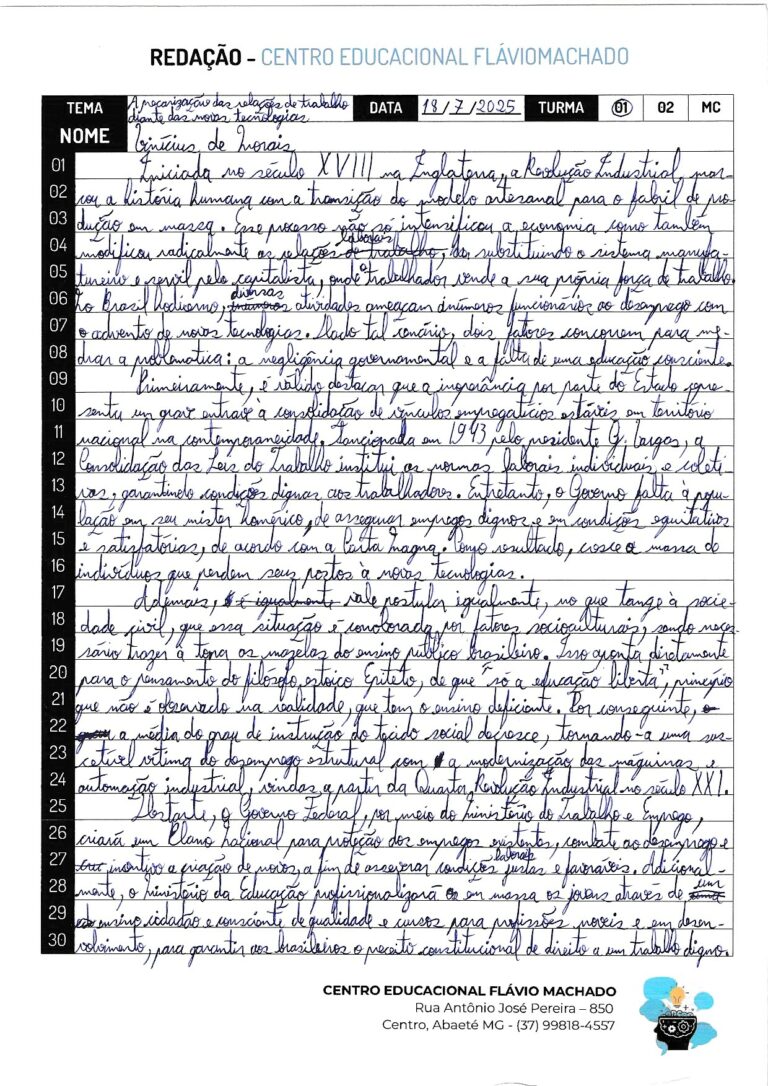 REDAÇÃO - CENTRO EDUCACIONAL FLÁVIOMACHADO
TEMA A precarização das relações de trabalho diante das novas tecnologias DATA 18/7/2025 TURMA 01 02 MC
NOME Vinícius de Morais
01 Iniciada no século XVIII na Inglaterra, a Revolução Industrial mar-
02 cou a história humana com a transição do modelo artesanal para o fabril de pro-
03 dução em massa. Esse processo não só intensificou a economia como também
04 modificou radicalmente as relações laborais, substituindo o sistema manufa-
05 tureiro e servil pelo capitalista, onde o trabalhador vende a sua própria força de trabalho.
06 No Brasil hodierno, diversas atividades ameaçam inúmeros funcionários ao desemprego com
07 o advento de novas tecnologias. Dado tal cenário, dois fatores concorrem para me-
08 drar a problemática: a negligência governamental e a falta de uma educação consciente.
09 Primeiramente, é válido destacar que a inoperância por parte do Estado repre-
10 senta um grave entrave à consolidação de vínculos empregatícios estáveis em território
11 nacional na contemporaneidade. Sancionada em 1943 pelo presidente G. Vargas, a
12 Consolidação das Leis do Trabalho institui as normas laborais individuais e coleti-
13 vas, garantindo condições dignas aos trabalhadores. Entretanto, o Governo falta à popu-
14 lação em seu mister homérico, de assegurar empregos dignos e em condições equitativas
15 e satisfatórias, de acordo com a Carta Magna. Como resultado, cresce a massa de
16 indivíduos que perdem seus postos à novas tecnologias.
17 Ademais, vale postular igualmente, no que tange à socie-
18 dade civil, que essa situação é corroborada por fatores socioculturais, sendo neces-
19 sário trazer à tona as mazelas do ensino público brasileiro. Isso aponta diretamente
20 para o pensamento do filósofo estoico Epiteto, de que "só a educação liberta", princípio
21 que não é observado na realidade, que tem o ensino deficiente. Por conseguinte,
22 a média do grau de instrução do tecido social decresce, tornando-a uma sus-
23 cetível vítima do desemprego estrutural com a modernização das máquinas e
24 automação industrial, vindas a partir da Quarta Revolução Industrial no século XXI.
25 Destarte, o Governo Federal, por meio do Ministério do Trabalho e Emprego,
26 criará um Plano Nacional para proteção dos empregos existentes, combate ao desemprego e
27 incentivo a criação de novos, a fim de asseverar condições laborais justas e favoráveis. Adicional-
28 mente, o Ministério da Educação profissionalizará em massa os jovens através de um
29 ensino cidadão e consciente de qualidade e cursos para profissões noveis e em desen-
30 volvimento, para garantir aos brasileiros o preceito constitucional de direito a um trabalho digno.
CENTRO EDUCACIONAL FLÁVIO MACHADO
Rua Antônio José Pereira – 850
Centro, Abaeté MG - (37) 99818-4557